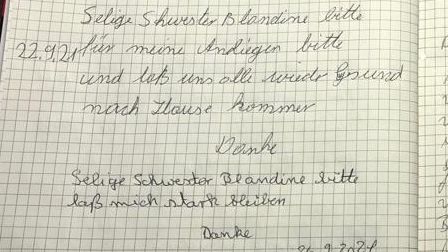 Selige Shwester Blandine bitte
22.9.21 für meine Andiegen bitte
und laß uns alle wiede Gesund
nach Hause kommer
Danke
Selige Schwester Blandine bitte
laß mich stark bleiben
Danke